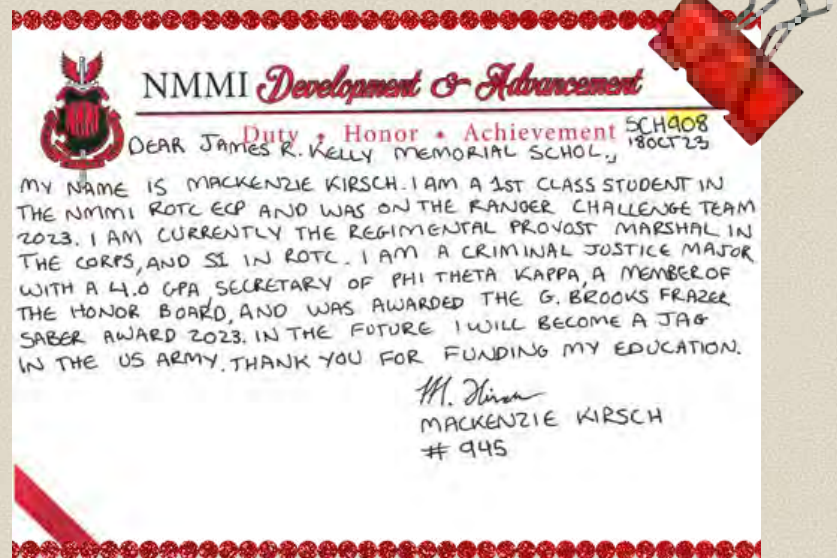 NMMI Development & Advancement
Duty • Honor • Achievement
SCH908
DEAR JAMES R. KELLY MEMORIAL SCHOL., 18OCT23
MY NAME IS MACKENZIE KIRSCH. I AM A 1ST CLASS STUDENT IN
THE NMMI ROTC ECP AND WAS ON THE RANGER CHALLENGE TEAM
2023. I AM CURRENTLY THE REGIMENTAL PROVOST MARSHAL IN
THE CORPS, AND S1 IN ROTC. I AM A CRIMINAL JUSTICE MAJOR
WITH A 4.0 GPA SECRETARY OF PHI THETA KAPPA, A MEMBER OF
THE HONOR BOARD, AND WAS AWARDED THE G. BROOKS FRAZER
SABER AWARD 2023. IN THE FUTURE I WILL BECOME A JAG
IN THE US ARMY. THANK YOU FOR FUNDING MY EDUCATION.
MACKENZIE KIRSCH
# 945